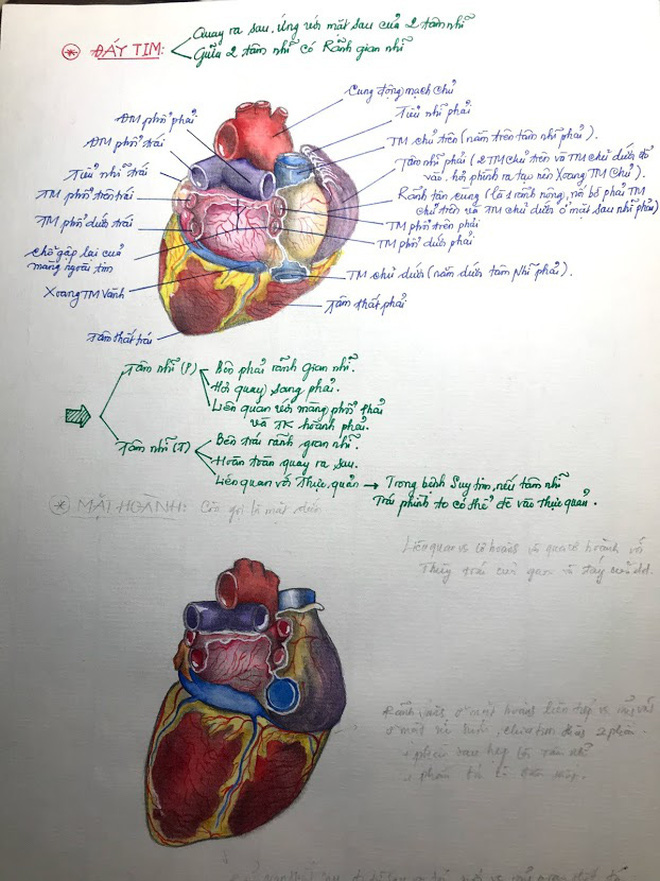 * ĐÁY TIM:
Quay ra sau, ứng với mặt sau của 2 tâm nhĩ
Giữa 2 tâm nhĩ có Rãnh gian nhĩ
Cung động mạch chủ
Tiểu nhĩ phải
TM chủ trên (nằm trên tâm nhĩ phải).
Tâm nhĩ phải (2 TM chủ trên và TM chủ dưới đổ
vào. hơi phình ra tạo nên Xoang TM Chủ).
Rãnh tận cùng (là 1 rãnh nông), nối bờ phải TM
chủ trên và TM chủ dưới ở mặt sau nhĩ phải)
TM phổi trên phải
TM phổi dưới phải
TM chủ dưới (nằm dưới tâm Nhĩ phải).
Tâm thất phải
ĐM phổi phải
ĐM phổi trái
Tiểu nhĩ trái
TM phổi trên trái
TM phổi dưới trái
Chỗ gập lại của
màng ngoài tim
Xoang TM Vành
Tâm thất trái
Tâm nhĩ (P)
Bên phải rãnh gian nhĩ.
Hơi quay sang phải.
Liên quan với màng phổi phải
và TK hoành phải.
Tâm nhĩ (T)
Bên trái rãnh gian nhĩ.
Hoàn toàn quay ra sau.
Liên quan với Thực quản → Trong bệnh Suy tim, nếu tâm nhĩ
Trái phình to có thể đè vào thực quản.
* MẶT HOÀNH: Còn gọi là mặt dưới
Liên quan cơ hoành và qua cơ hoành với
Thùy trái của gan và đáy của dd.